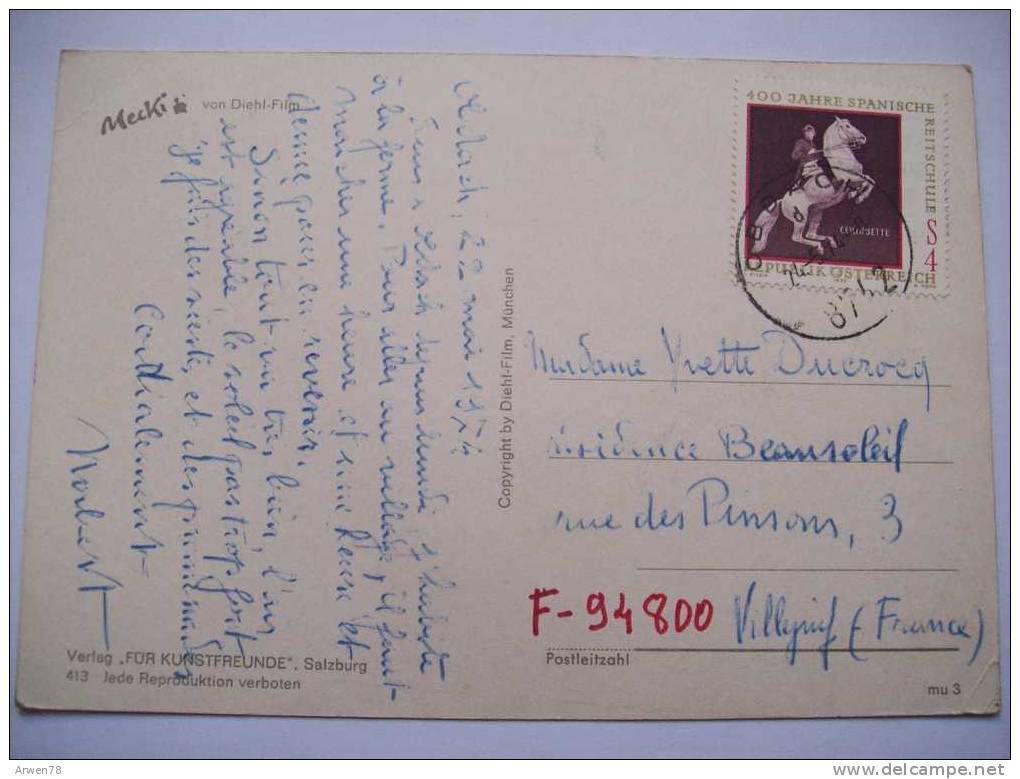 Mecki von Diehl-Film
22 mai 1974
Je suis lundi, j'habite
à la ferme. Pour aller au village, il faut
marcher une heure et une heure et
demie pour en revenir.
Sinon tout va très bien, l'air
est agréable, le soleil pas trop fort
je fais des siestes et des promenades
Cordialement
Norbert
Verlag „FÜR KUNSTFREUNDE“, Salzburg
413 Jede Reproduktion verboten
Copyright by Diehl-Film, München
400 JAHRE SPANISCHE
REITSCHULE
COURBETTE
S 4
REPUBLIK ÖSTERREICH
OBDACH
Madame Yvette Ducrocq
résidence Beausoleil
rue des Pinsons, 3
F-94800 Villejuif (France)
Postleitzahl
mu 3
Arwen78